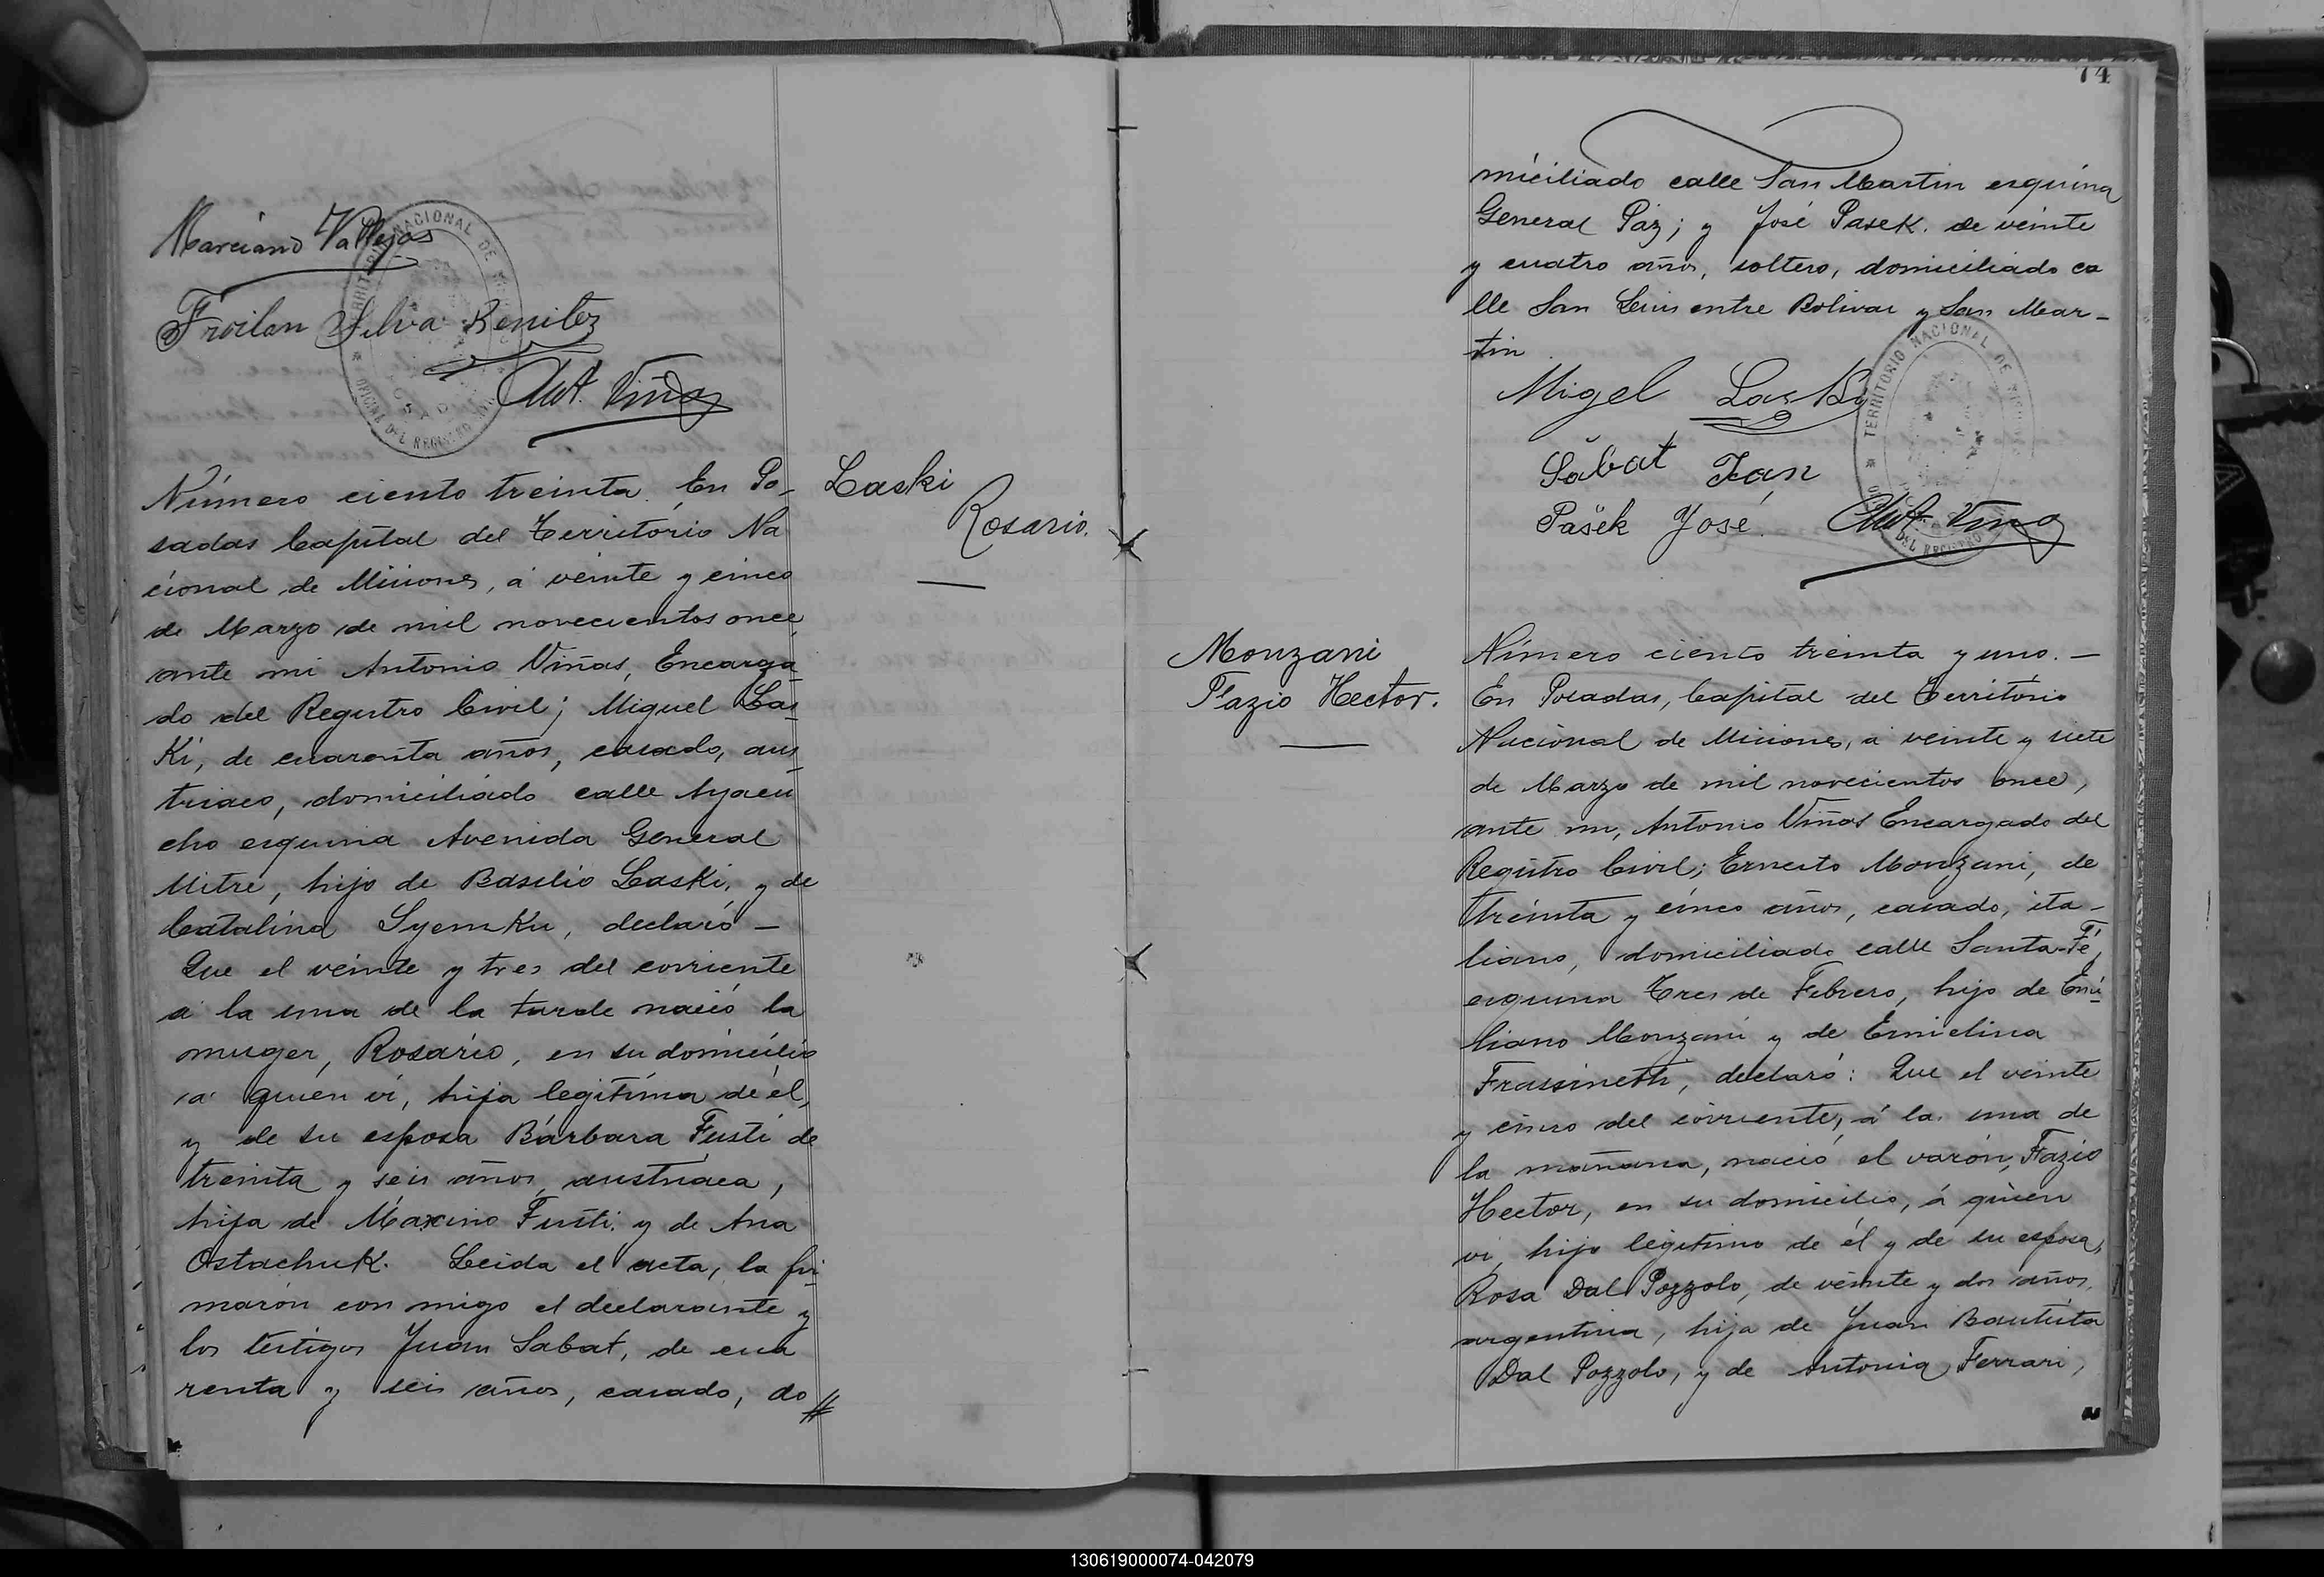 Marciano Vallejos
Froilan Silva Benitez
Ant. Viñas
TERRITORIO NACIONAL DE
OFICINA DEL REGISTRO CIVIL
Número ciento treinta. En Po-
sadas Capital del Territorio Na
cional de Misiones, á veinte y cinco
de Marzo de mil novecientos once,
ante mi Antonio Viñas, Encarga-
do del Registro Civil; Miguel Las-
Ki, de cuarenta años, casado, aus-
triaco, domiciliado calle Ayacu
cho esquina Avenida General
Mitre, hijo de Basilio Laski, y de
Catalina SyemKu, declaró —
Que el veinte y tres del corriente
á la una de la tarde nació la
muger, Rosario, en su domicilio
á quien ví, hija legítima de él,
y de su esposa Bárbara Fusti de
treinta y seis años, austriaca,
hija de Máximo Fusti y de Ana
OstachuK. Leida el acta, la fir-
maron con migo el declarante y
los testigos Juan Sabat, de cua
renta y seis años, casado, do //
Laski
Rosario.
74
miciliado calle San Martin esquina
General Paz; y José Pasek. de veinte
y cuatro años, soltero, domiciliado ca
lle San Luis entre Bolivar y San Mar-
tin
Migel Laski
Sabat Jan
Pašek José. Ant. Viñas
TERRITORIO NACIONAL DE
DEL REGISTRO
Monzani
Flazio Hector.
Número ciento treinta y uno. —
En Posadas, Capital del Territorio
Nacional de Misiones, á veinte y siete
de Marzo de mil novecientos once,
ante mi, Antonio Viñas Encargado del
Registro Civil; Ernesto Monzani, de
treinta y cinco años, casado, ita-
liano, domiciliado calle Santa-Fé,
esquina Tres de Febrero, hijo de Emi-
liano Monzani y de Emielina
Frassineth, declaró: Que el veinte
y cinco del corriente, á la una de
la mañana, nació el varón, Fazio
Hector, en su domicilio, á quien
ví, hijo legitimo de él y de su esposa,
Rosa Dal Pozzolo, de veinte y dos años,
argentina, hija de Juan Bautista
Dal Pozzolo, y de Antonia Ferrari,
130619000074-042079